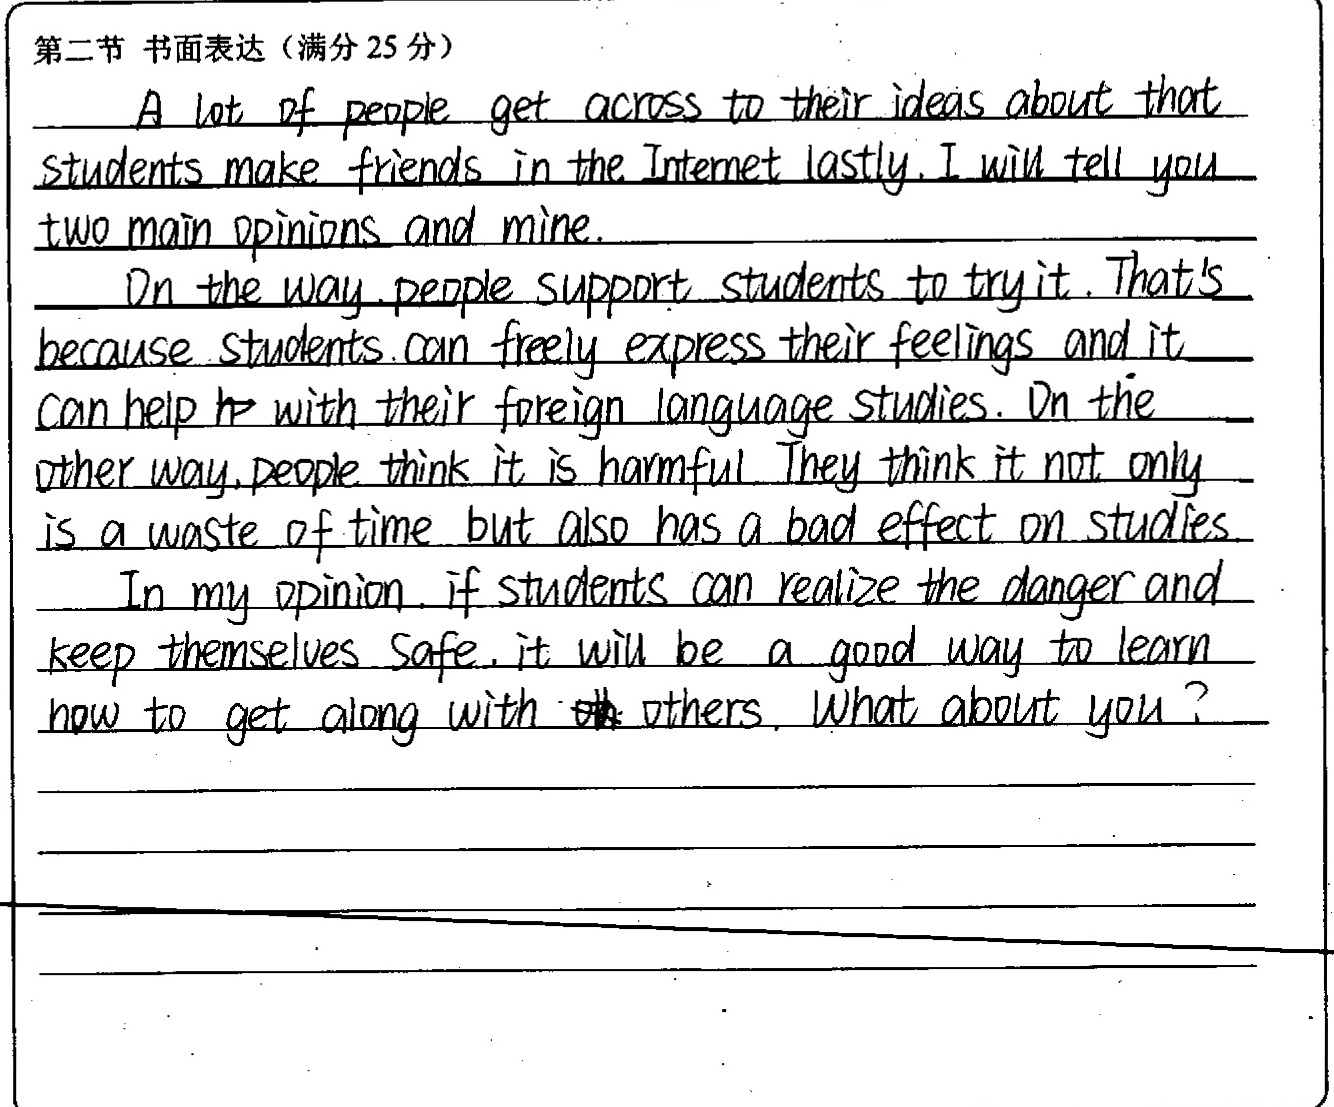 第二节 书面表达（满分 25 分）
A lot of people get across to their ideas about that
students make friends in the Internet lastly. I will tell you
two main opinions and mine.
On the way, people support students to try it. That's
because students can freely express their feelings and it
can help with their foreign language studies. On the
other way, people think it is harmful They think it not only
is a waste of time but also has a bad effect on studies.
In my opinion, if students can realize the danger and
keep themselves safe, it will be a good way to learn
how to get along with others. What about you?